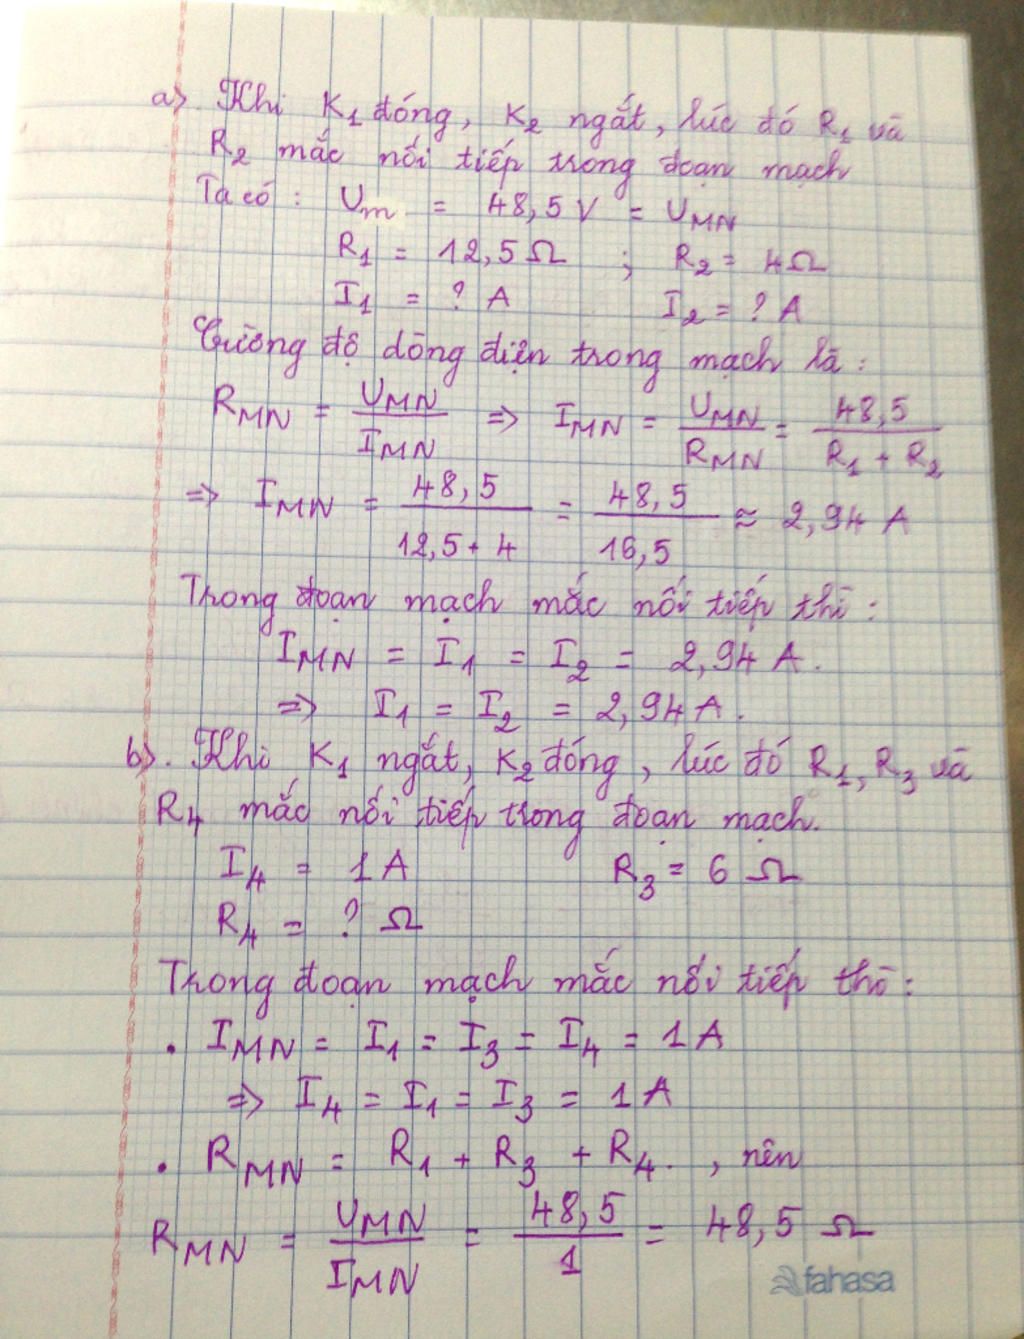 a). Khi K₁ đóng, K₂ ngắt, lúc đó R₁ và
R₂ mắc nối tiếp trong đoạn mạch
Ta có : Um = 48,5V = UMN
R₁ = 12,5Ω ; R₂ = 4Ω
I₁ = ? A I₂ = ? A
Cường độ dòng điện trong mạch là :
RMN = UMN/IMN => IMN = UMN/RMN = 48,5/R₁ + R₂
=> IMN = 48,5/12,5 + 4 = 48,5/16,5 ≈ 2,94 A
Trong đoạn mạch mắc nối tiếp thì :
IMN = I₁ = I₂ = 2,94 A.
=> I₁ = I₂ = 2,94A.
b). Khi K₁ ngắt, K₂ đóng, lúc đó R₁, R₃ và
R₄ mắc nối tiếp trong đoạn mạch.
I₄ = 1A R₃ = 6 Ω
R₄ = ? Ω
Trong đoạn mạch mắc nối tiếp thì :
. IMN = I₁ = I₃ = I₄ = 1A
=> I₄ = I₁ = I₃ = 1A
. RMN = R₁ + R₃ + R₄. , nên
RMN = UMN/IMN = 48,5/1 = 48,5 Ω
fahasa